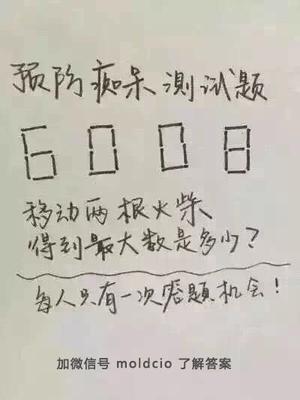 预防痴呆测试题
6008
移动两根火柴
得到最大数是多少？
每人只有一次答题机会！
加微信号 moldcio 了解答案